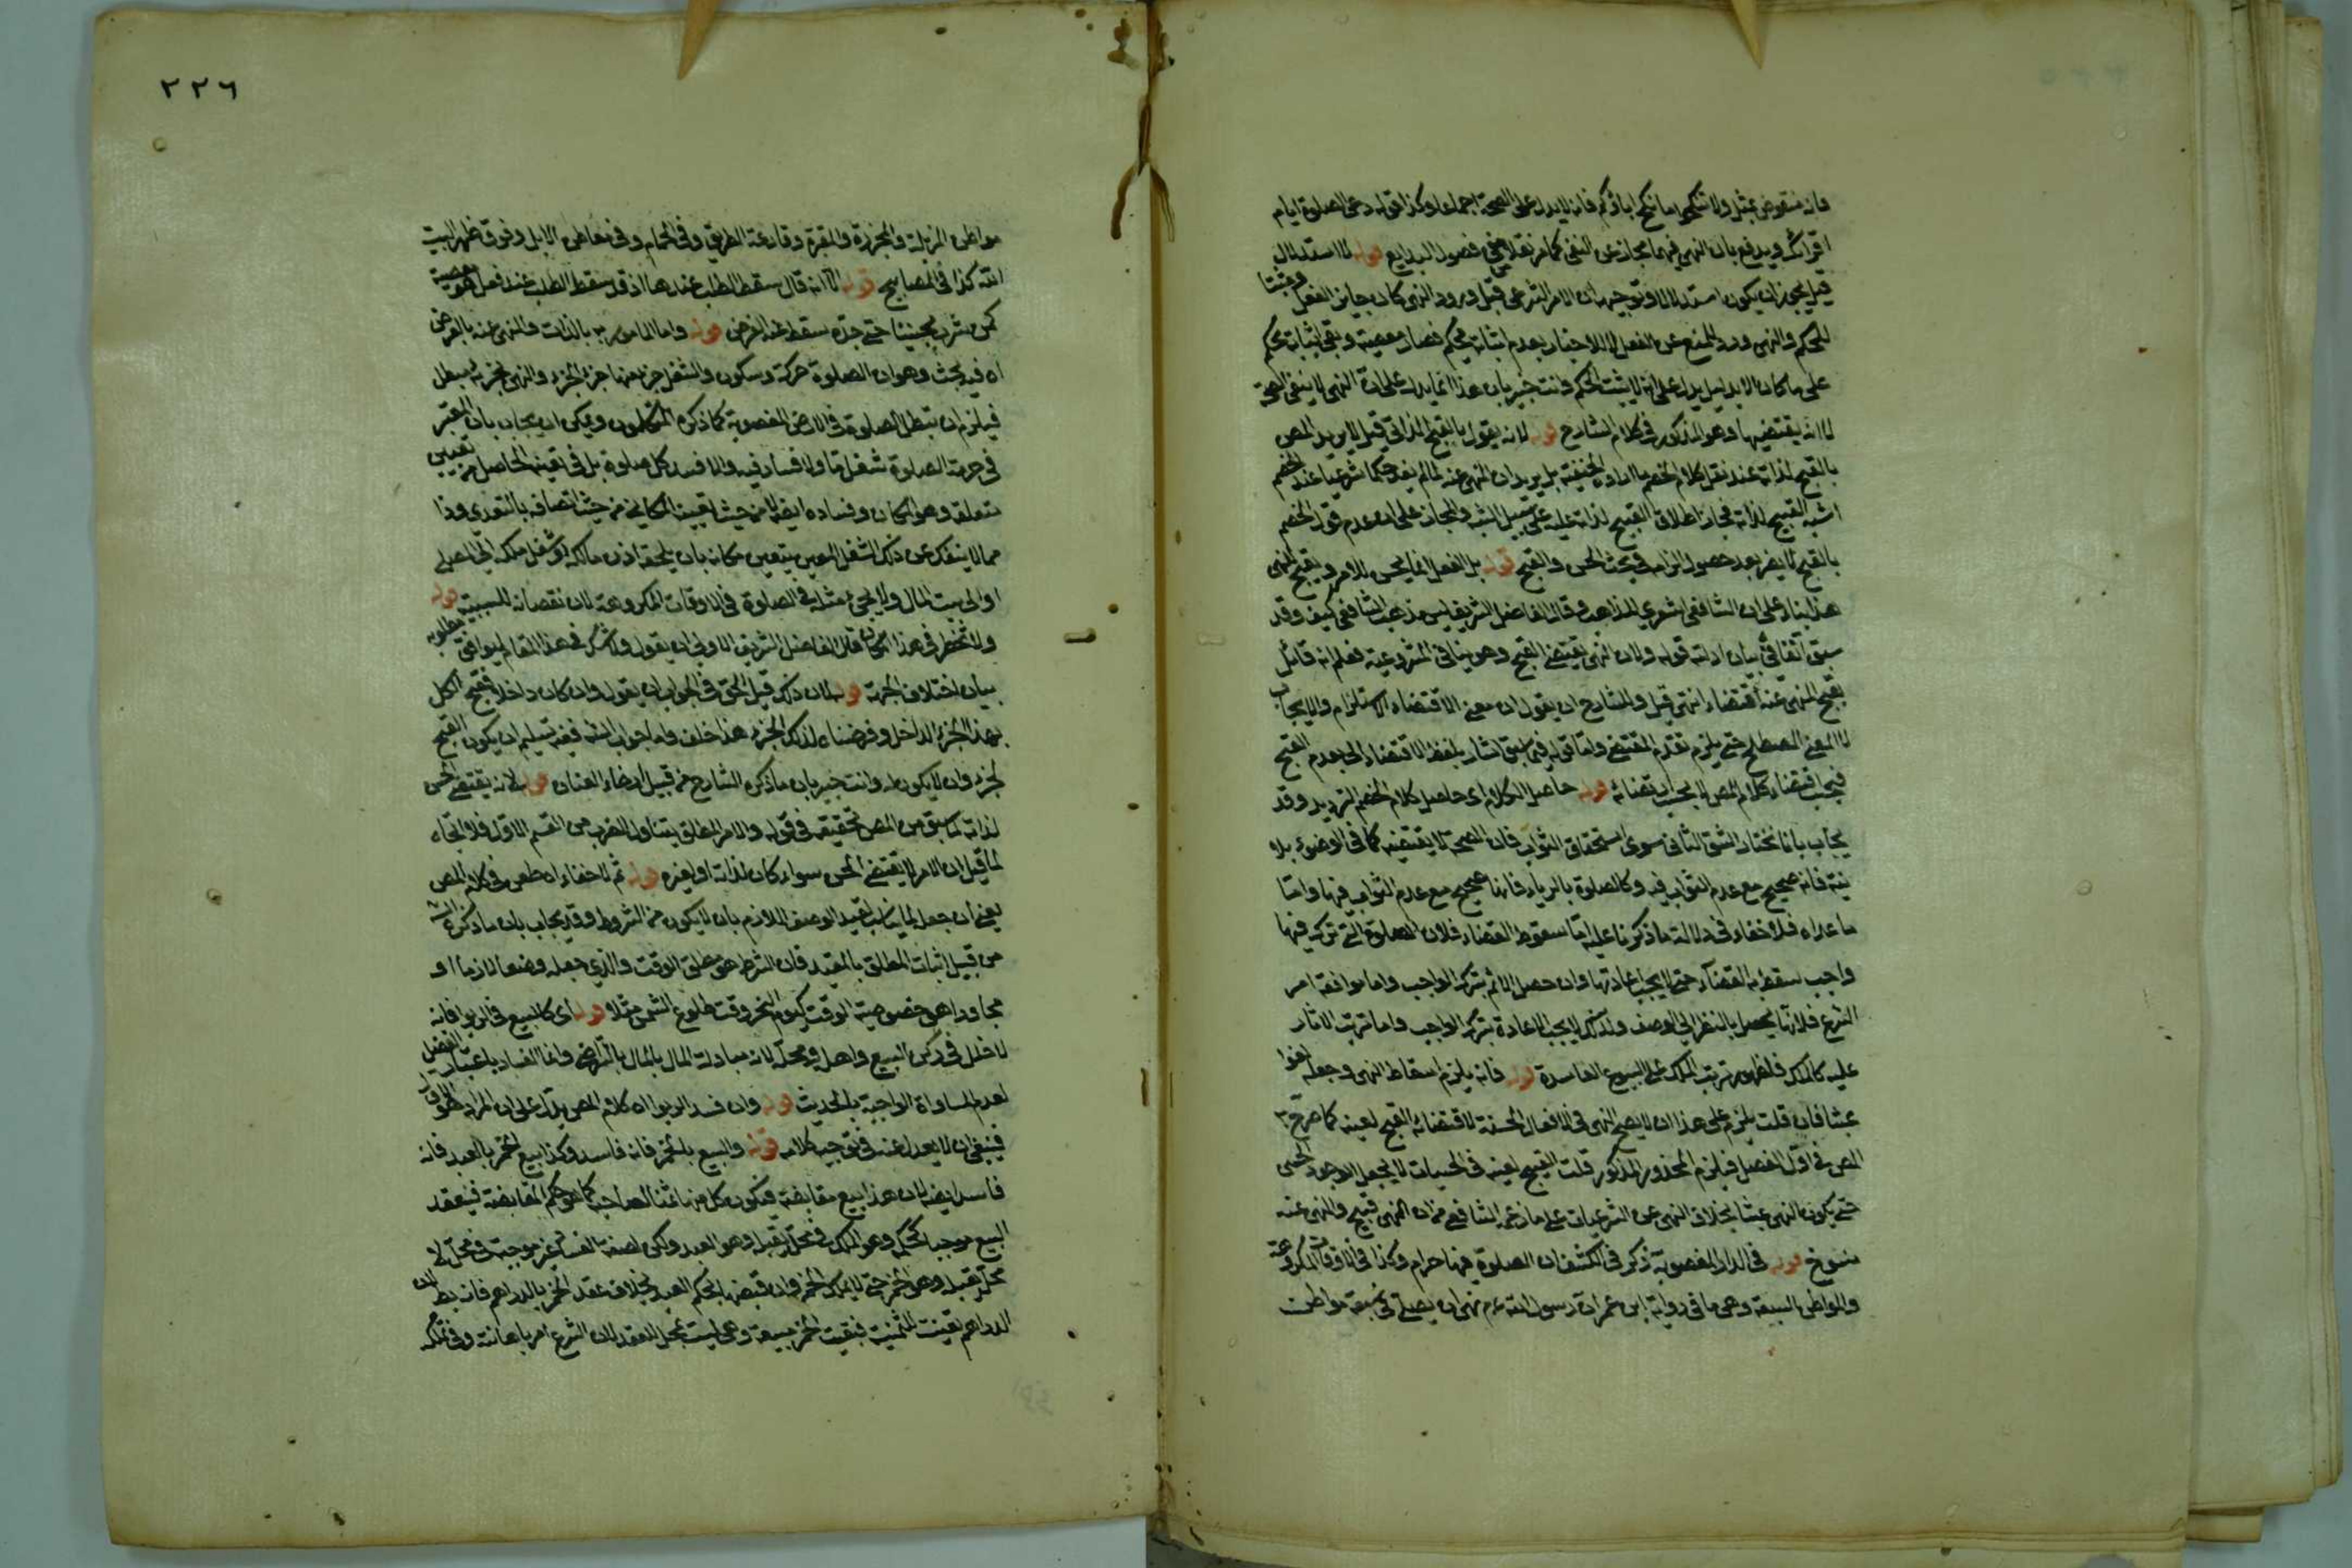 فانه منقوض بمثل ولا تنكحوا ما نكح اباؤكم فانه لا يدل على الصحة اجماعا وكذا قوله دعي الصلوة ايام
اقرائك ويدفع بان النهي فيهما مجاز عن النفي كما مر نقلا عن فصول البدايع قوله لا استدلال
قيل يجوز ان يكون استدلالا وتوجيهه ان الامر الشرعي قبل ورود النهي كان جايز الفعل ومثبتا
للحكم والنهي ورد للمنع عن الفعل لا للاخبار بعدم اثباته لحكم فصار معصية وبقي اثباته لحكم
على ما كان الا بدليل يدل على انه لا يثبت الحكم وانت خبير بان هذا انما يدل على ان النهي لا ينفي الصحة
لا انه يقتضيها وهو المذكور في كلام الشارح قوله لانه يقول بالقبح الذاتي قيل لا يريد المص
بالقبح لذاته عند نقل كلام الخصم ما اراده الحنفية بل يريد ان النهي عنه لما لم يفد حكما شرعيا عند الخصم
اشبه القبيح لذاته فجاز اطلاق القبيح لذاته عليه على سبيل التشبيه والمجاز على ان عدم قول الخصم
بالقبح لا يضر بعد حصول الزامه في بحث الحسن والقبح قوله بل الفعل انما يحسن للامر ويقبح للنهي
هذا بناء على ان الشافعي اشعري المذهب وقال الفاضل الشريف ليس مذهب الشافعي كيف وقد
سبق آنفا في بيان ادلته قوله ولان النهي يقتضي القبح وهو ينافي المشروعية فعلم انه قائل
بقبح المنهي عنه اقتضاء انتهى قيل وللشارح ان يقول ان معنى الاقتضاء الاستلزام والايجاب
لا المعنى المصطلح حتى يلزم تقدم المقتضى واما قوله فيما سبق اشار بلفظ الاقتضاء الى تقدم القبح
فبحسب اقتضاء كلام المص لا بحسب ارتضائه قوله حاصل الكلام اي حاصل كلام الخصم الترديد وقد
يجاب بانا نختار الشق الثاني سوى استحقاق الثواب فان الصحة لا يقتضيه كما في الوضوء بلا
نية فانه صحيح مع عدم الثواب فيه وكالصلوة بالرياء فانها صحيح مع عدم الثواب فيها واما
ما عداه فلا خفاء في دلالة ما ذكرنا عليه اما سقوط القضاء فلان الصلوة التي ترك فيها
واجب سقط به القضاء حتى لا يجب اعادتها وان حصل الاثم بترك الواجب واما موافقة امر
الشرع فلانها يحصل بالنظر الى الوصف ولذلك لا يجب الاعادة بترك الواجب واما ترتب الاثار
عليه كالملك فلظهور ترتب الملك على البيوع الفاسدة قوله فانه يلزم اسقاط النهي وجعله لغوا
عبثا فان قلت يلزم على هذا ان لا يصح النهي في الافعال الحسنة لاقتضائه القبح لعينه كما صرح به
المص في اول الفصل فيلزم المحذور المذكور قلت القبيح لعينه في الحسيات لا يجعل الوجود الحسي
حتى يكون النهي عبثا بخلاف النهي عن الشرعيات على ما زعم الشافعي من ان المنهي قبيح والنهي عنه
منسوخ قوله في الدار المغصوبة ذكر في الكشف ان الصلوة فيها حرام وكذا في الاوقات المكروهة
والمواطن السبعة وهي ما في رواية ابن عمر ان رسول الله عم نهى ان يصلى في سبعة مواطن
٢٢٦
مواطن المزبلة والمجزرة والمقبرة وقارعة الطريق وفي الحمام وفي معاطن الابل وفوق ظهر بيت
الله كذا في المصابيح قوله الا انه قال سقط الطلب عندها اذ قد سقط الطلب عند فعل هو معصية
كمن شرب مجننا حتى جن سقط عنه الفرض قوله واما المامور به بالذات والنهي عنه بالعرض
اه فيه بحث وهو ان الصلوة حركة وسكون والشغل جزء منهما جزء الجزء والنهي لجزئه يبطل
فيلزم ان تبطل الصلوة في الارض المغصوبة كما ذكره المتكلمون ويمكن ان يجاب بان المعتبر
في حرمة الصلوة شغل ما ولا فساد فيه والا فسد كل صلوة بل في تعينه الحاصل من تعيين
متعلقه وهو المكان وفساده ايضا لا من حيث تعيينه المكاني بل من حيث اتصافه بالتعدي وذا
مما لا ينفك عن ذلك الشغل المعين بتعين مكانه بان يلحقه اذن مالكه او شغل ملكه الى المصلي
او الى بيت المال ولا يجيء مثله في الصلوة في الاوقات المكروهة لان نقصانه للسببية قوله
ولا تخطر في هذا المكان قال الفاضل الشريف الاولى ان يقول ولا شك في هذا المقام ليوافق مطلوبه
بيان اختلاف الجهة قوله لان ذلك قيل الحق في الجواب ان يقول وان كان داخلا فقبح الكل
بهذا الجزء الداخل وفرضناه لذلك الجزء هذا خلف واما جواب الشارح ففيه تسليم ان يكون القبح
لجزء وان لا يكون له وانت خبير بان ما ذكره الشارح من قبيل ارخاء العنان قوله لانه يقتضي الحسن
لذاته لما سبق من المص تحقيقه في قوله والامر المطلق يتناول الضرب من القسم الاول فلا اتجاه
لما قيل ان الامر لا يقتضي الحسن سواء كان لذاته او لغيره قوله ثم لا خفاء اه طعن في كلام المص
يعني ان جعل ما يناسب تقييد الوصف اللازم بان لا يكون من الشروط وقد يجاب بان ما ذكره الشارح
من قبيل اثبات المطلق بالمقيد فان الشرط هو مطلق الوقت والذي جعله وصفا لازما او
مجاورا هو خصوصية الوقت كيوم النحر ووقت طلوع الشمس مثلا قوله اي كالبيع في الربوا فانه
لا خلل في ركن البيع واهله ومحله لانه مبادلة المال بالمال بالتراضي وانما الفساد باعتبار الفضل
لعدم المساواة الواجبة بالحديث قوله وان فسد الربوا اه كلام المص يدل على ان المراد هو
فينبغي ان لا يعدل عنه في توجيه كلامه قوله والبيع بالخمر فانه فاسد وكذا بيع الخمر بالعبد فانه
فاسد ايضا لان هذا بيع مقايضة فيكون كل منهما ثمنا لصاحبه كما هو حكم المقايضة فينعقد
البيع موجبا لحكمه وهو الملك في محل يقبله وهو العبد ولكن لصفة الفساد غير موجبة في محل لا
محل يقبله وهو الخمر حتى لا يملك الخمر وان قبضها بحكم العبد بخلاف عقد الخمر بالدراهم فانه بط لان
الدراهم تعينت للثمنية فبقيت الخمر مبيعة وهي ليست بمحل للعقد لان الشرع امر باهانته وفي تملكه